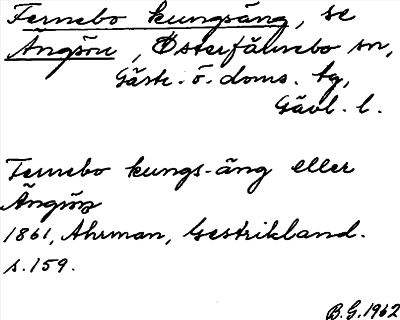 Fernebo kungsäng, se
Ängsön, Österfärnebo sn,
Gästr. ö. doms. tg,
Gävl. l.
Fernebo kungs-äng eller
Ängsön
1861, Ahrman, Gestrikland.
s. 159.
B.G. 1962